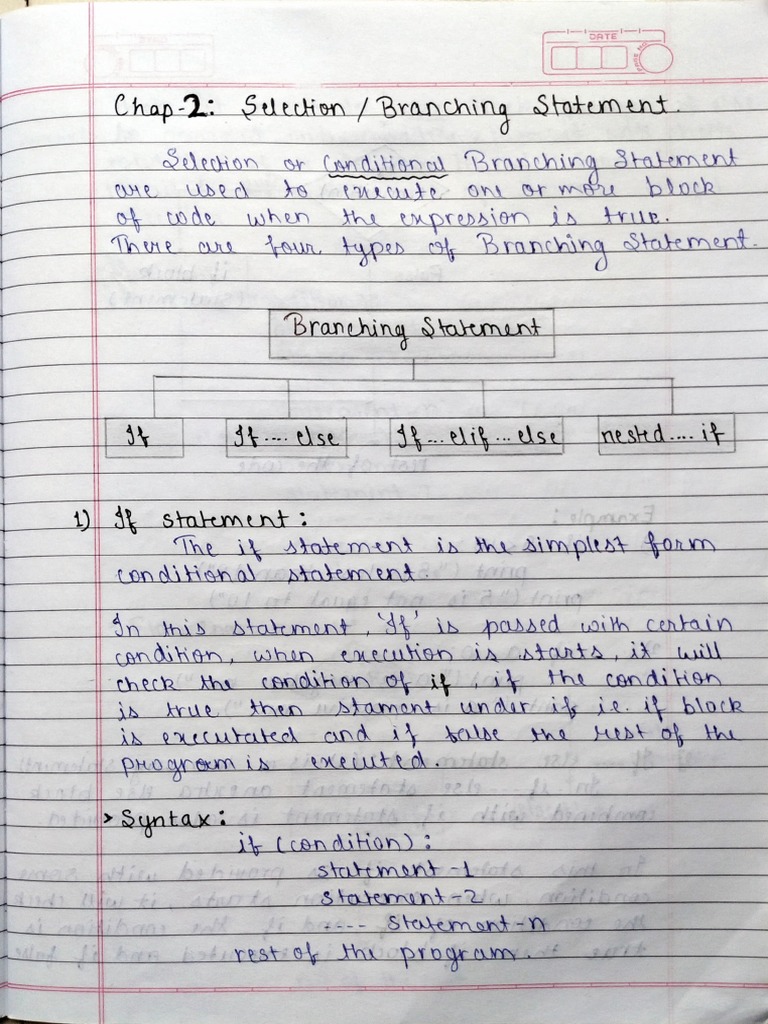 DATE
Chap-2: Selection / Branching Statement.
Selection or conditional Branching Statement
are used to execute one or more block
of code when the expression is true.
There are four types of Branching Statement.
Branching Statement
If
If .... else
If ... elif ... else
nested .... if
1) If statement :
The if statement is the simplest form
conditional statement.
In this statement, 'If' is passed with certain
condition, when execution is starts, it will
check the condition of if, if the condition
is true then stament under if i.e. if block
is executated and if false the rest of the
program is executed.
> Syntax :
if (condition) :
statement-1
statement-2
---- statement-n
rest of the program.